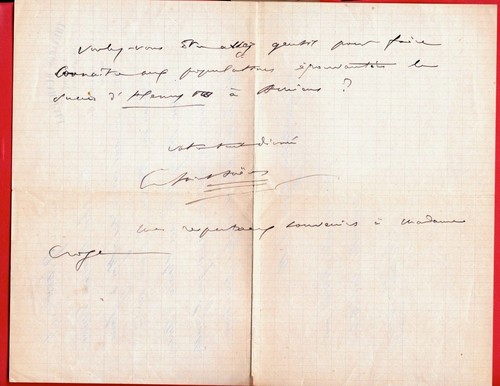 Voulez-vous être assez gentil pour faire
connaître aux populations épouvantées le
succès d'Henry VIII à Amiens ?
votre tout dévoué
C. Saint-Saëns
mes respectueux souvenirs à Madame